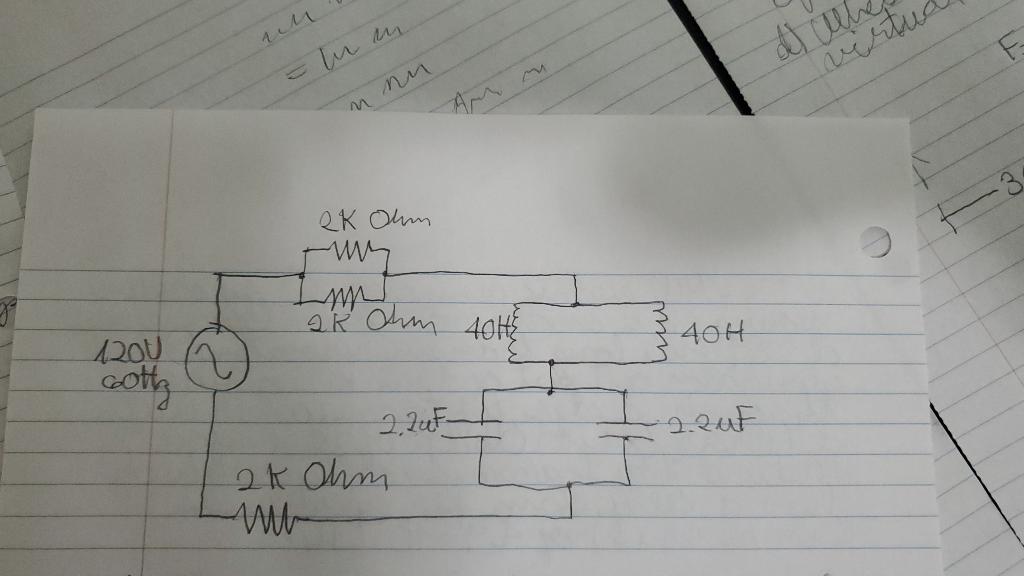 d)
F=
2K Ohm
2K Ohm
40H
40H
120V
60Hz
2.2uF
2.2uF
2K Ohm